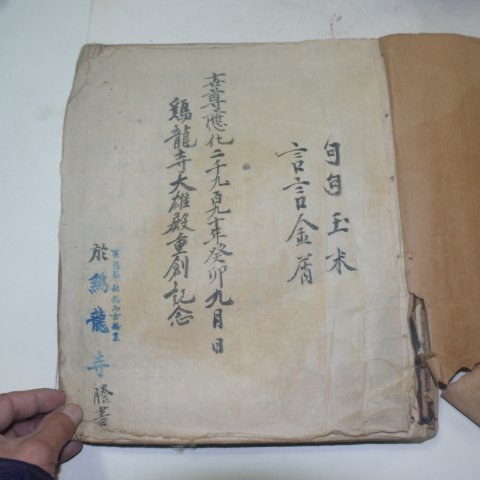 句句玉末
言言金屑
世尊應化二千九百九十年癸卯九月日
鷄龍寺大雄殿重創記念
於鷄龍寺謄書